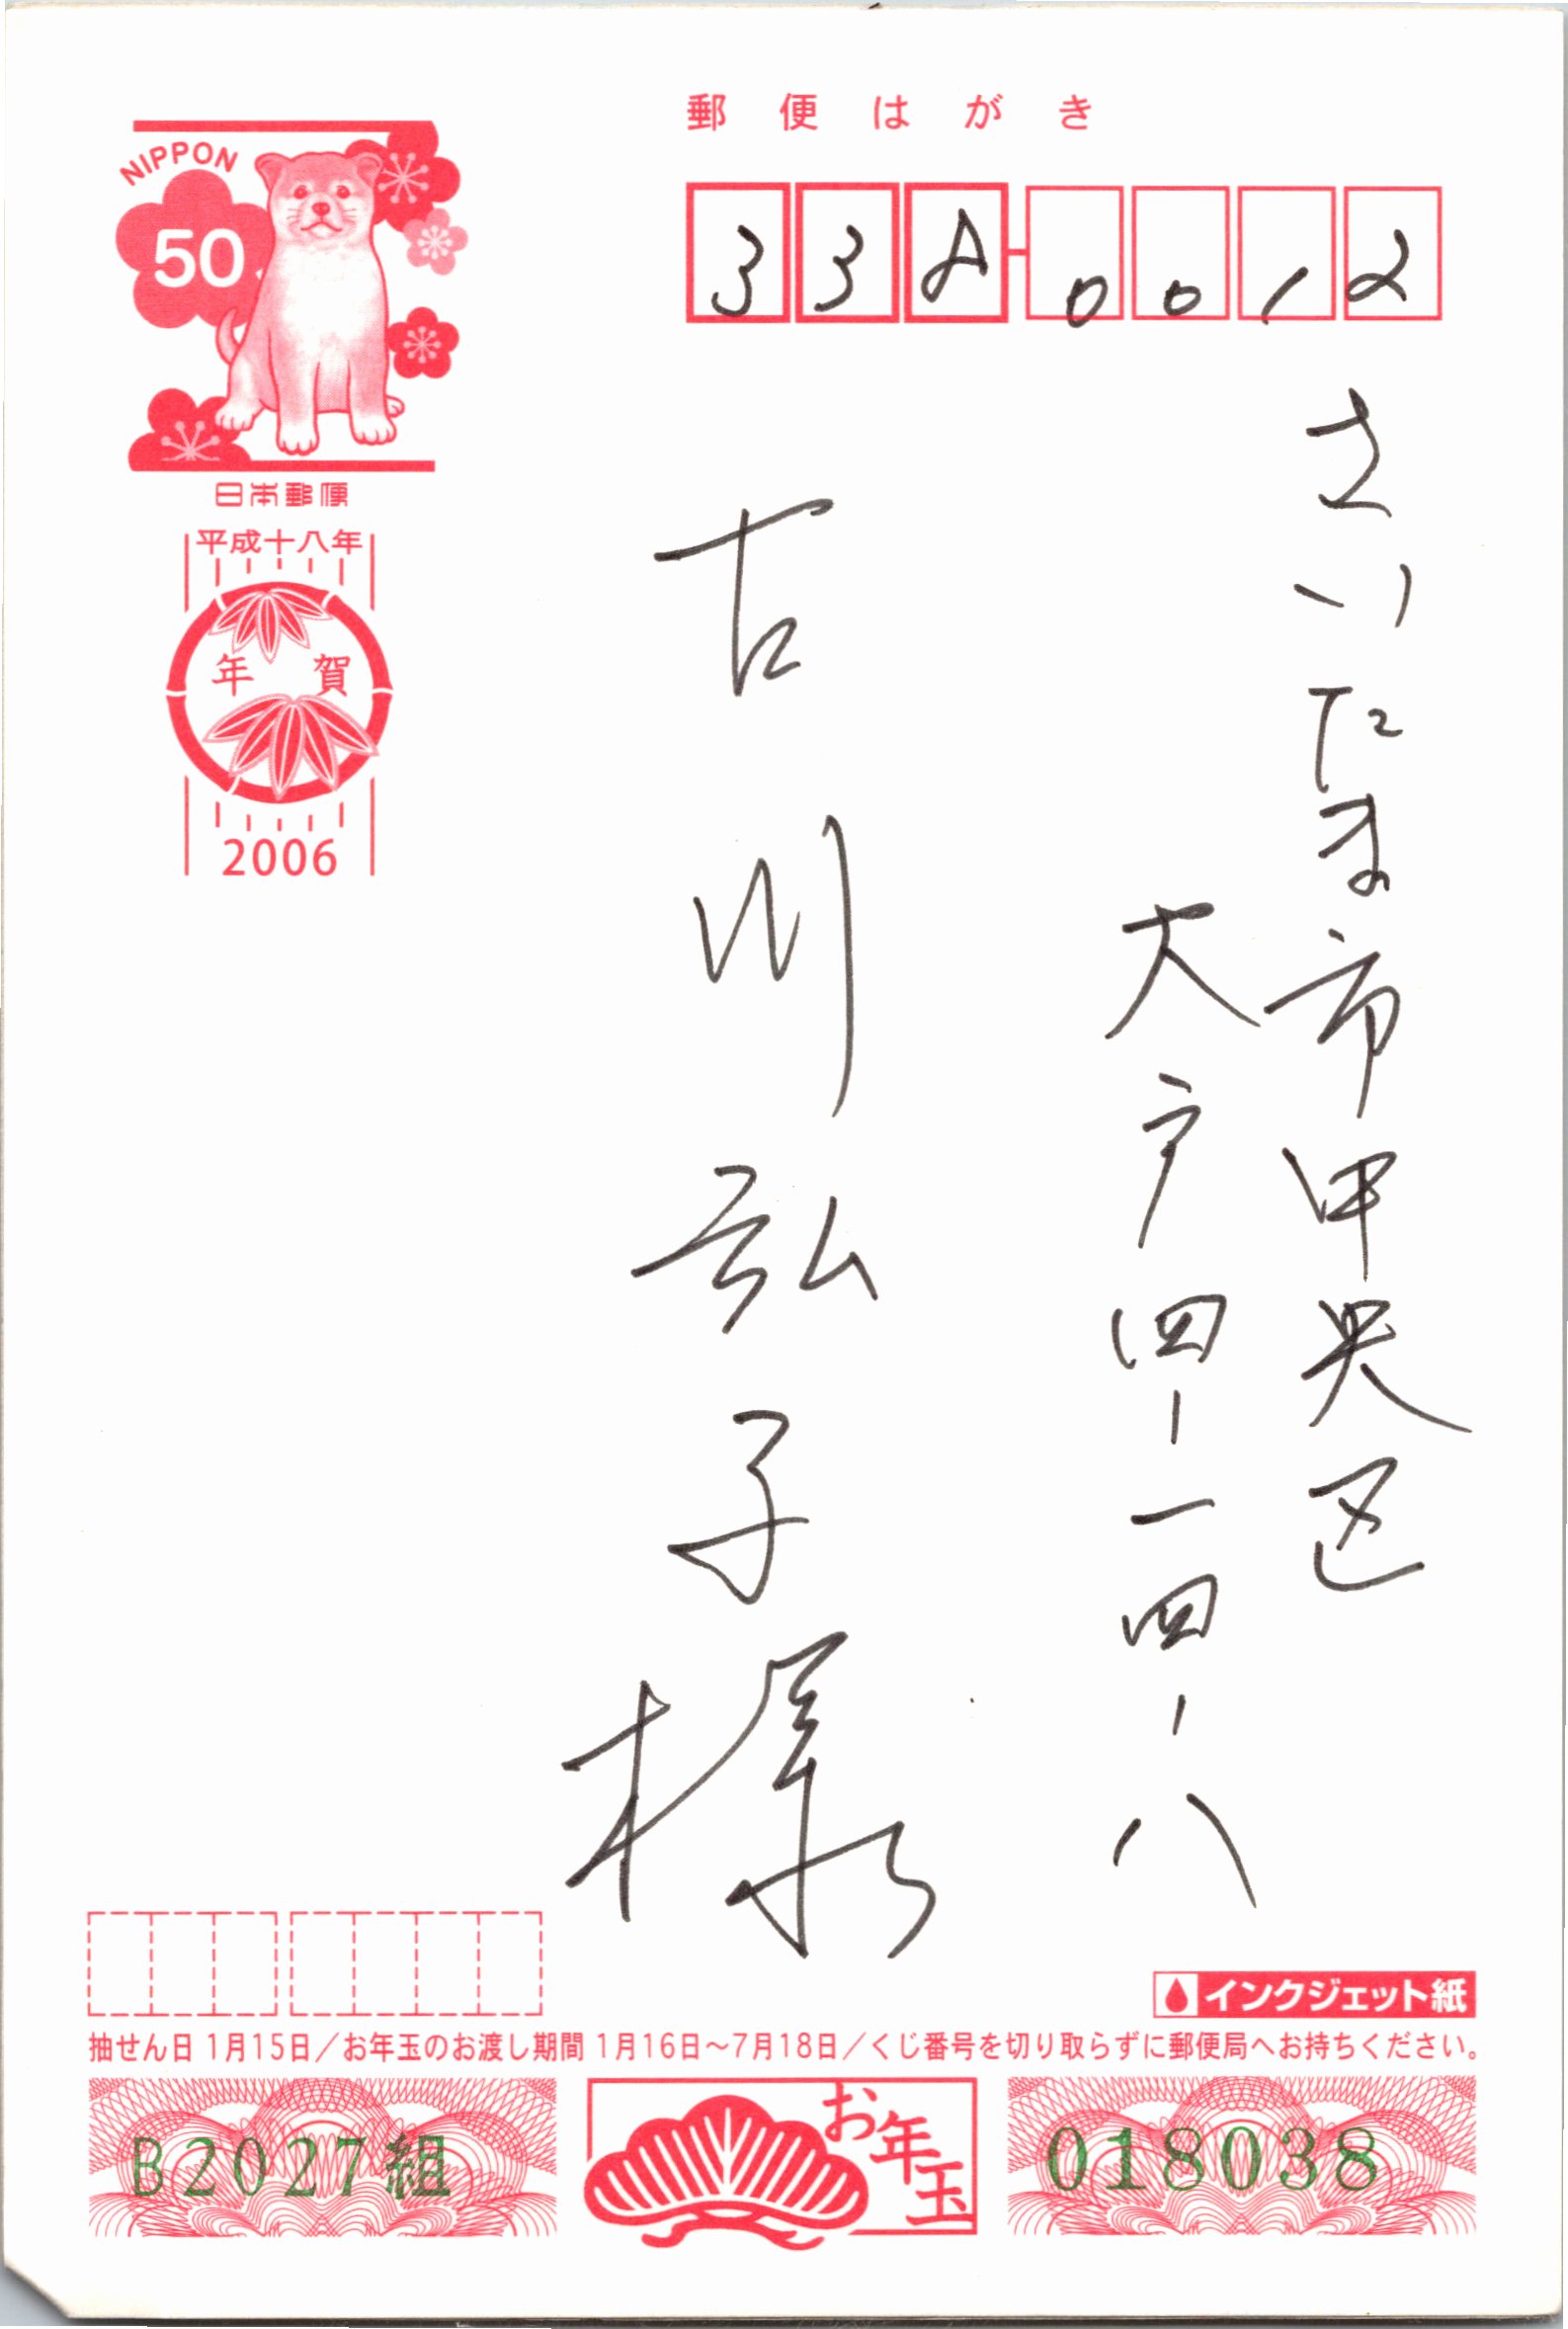 郵便はがき
338-0012
さいたま市中央区
大戸四-一四-八
古川弘子様
NIPPON
50
日本郵便
平成十八年
年賀
2006
インクジェット紙
抽せん日 1月15日/お年玉のお渡し期間 1月16日~7月18日/くじ番号を切り取らずに郵便局へお持ちください。
B2027組
お年玉
018038